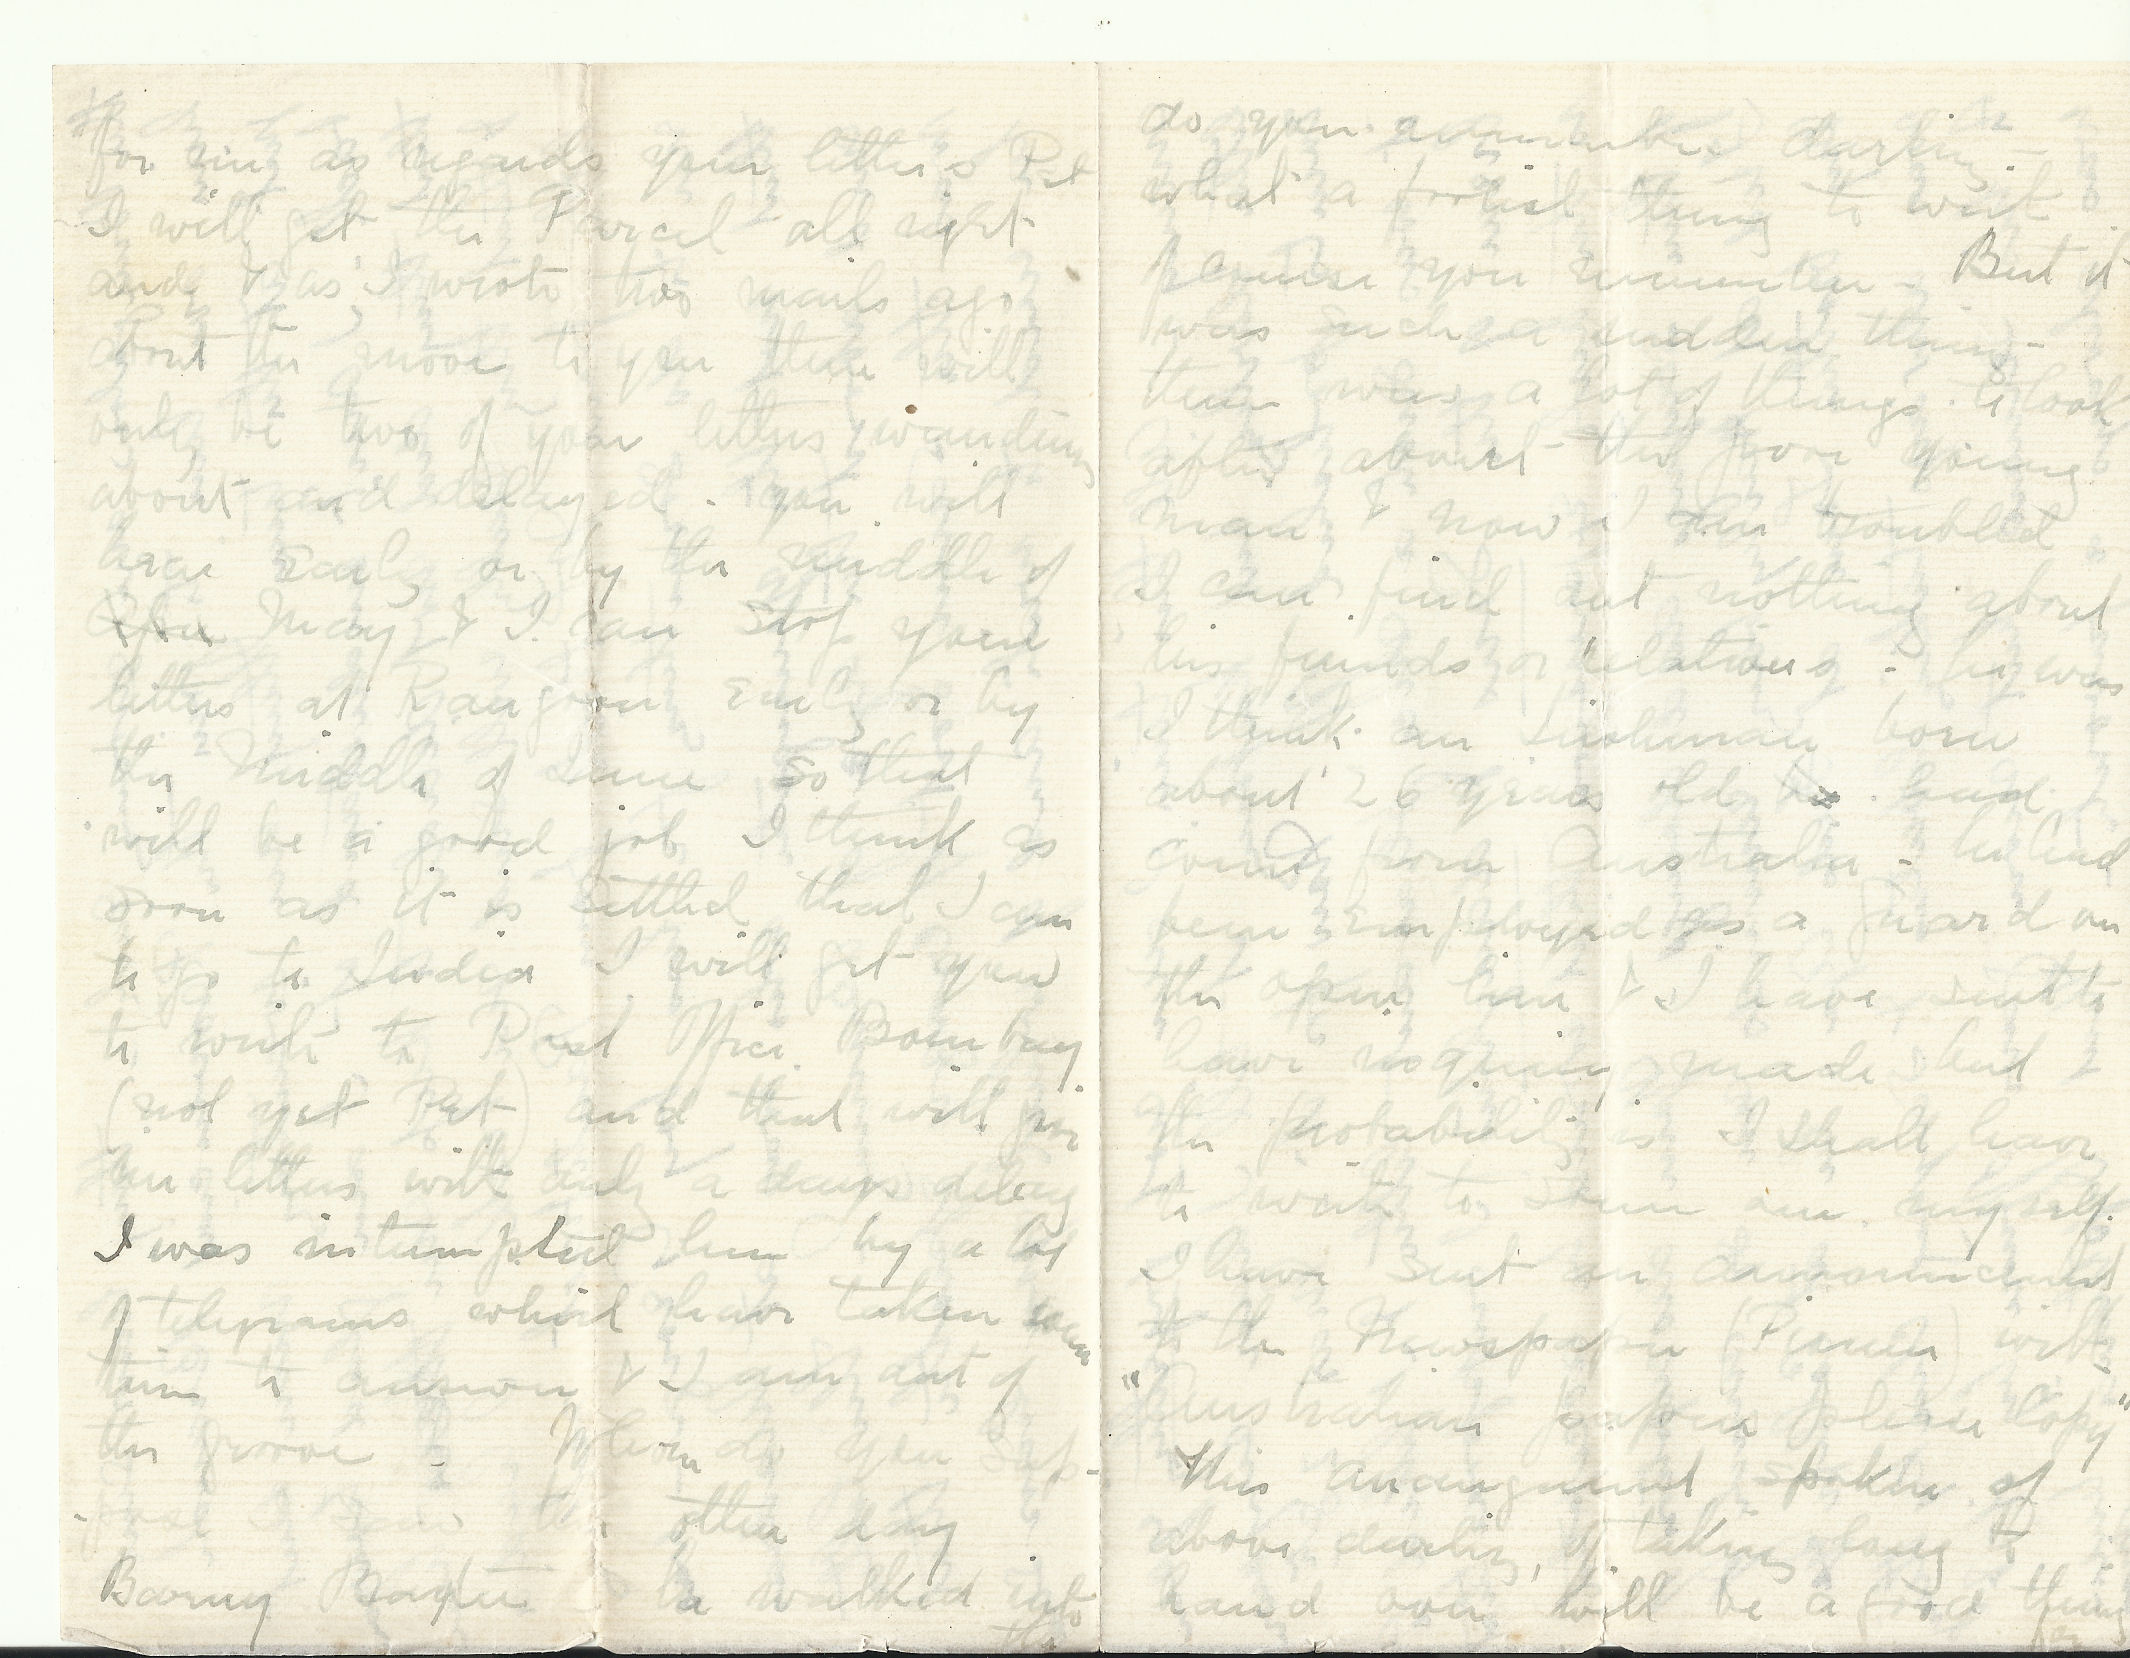 for me as regards your letters Pet
I will get the Parcel all right
and & as I wrote two mails ago
about the move to you there will
only be two of your letters wandering
about and delayed - you will
hear early or by the middle of
May & I can stop your
letters at Rangoon early or by
the middle of June so that
will be a good job I think as
soon as it is settled that I am
to go to India I will get you
to write to Post Office Bombay
(not yet Pet) and that will give
me letters with only a days delay
I was interrupted here by a lot
of telegrams which have taken some
time to answer & I am out of
the groove - Whom do you sup-
pose I saw the other day
Barny he walked into
the
do you remember darling -
what a foolish thing to write
of course you remember - But it
was such a sudden thing -
there was a lot of things to look
after about the poor young
man & now I am troubled
I can find out nothing about
his friends or relations - he was
I think an Irishman born
about 26 years old he had
come from Australia - he had
been employed as a guard on
the open line & I have sent to
have inquiry made but
the probability is I shall have
to write to some one myself.
I have sent an announcement
to the Newspaper (Pioneer) with
"Australian papers please Copy"
This arrangement spoken of
above darling, of taking long to
hand over will be a good thing
for